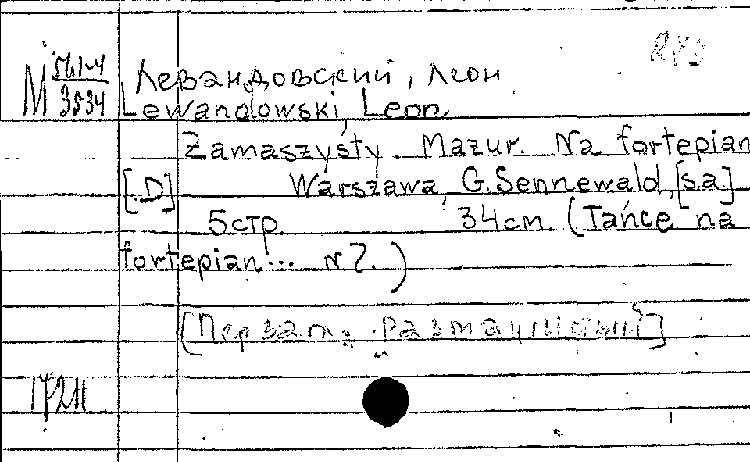 М 561-4 Левандовский, Леон
3534 Lewandowski, Leon
Zamaszysty. Mazur. Na fortepian
[D] Warszawa, G. Sennewald, [s.a]
5 стр. 34 см. (Tańce na
fortepian... nr 7.)
[Перевод: Размашистый]
17211